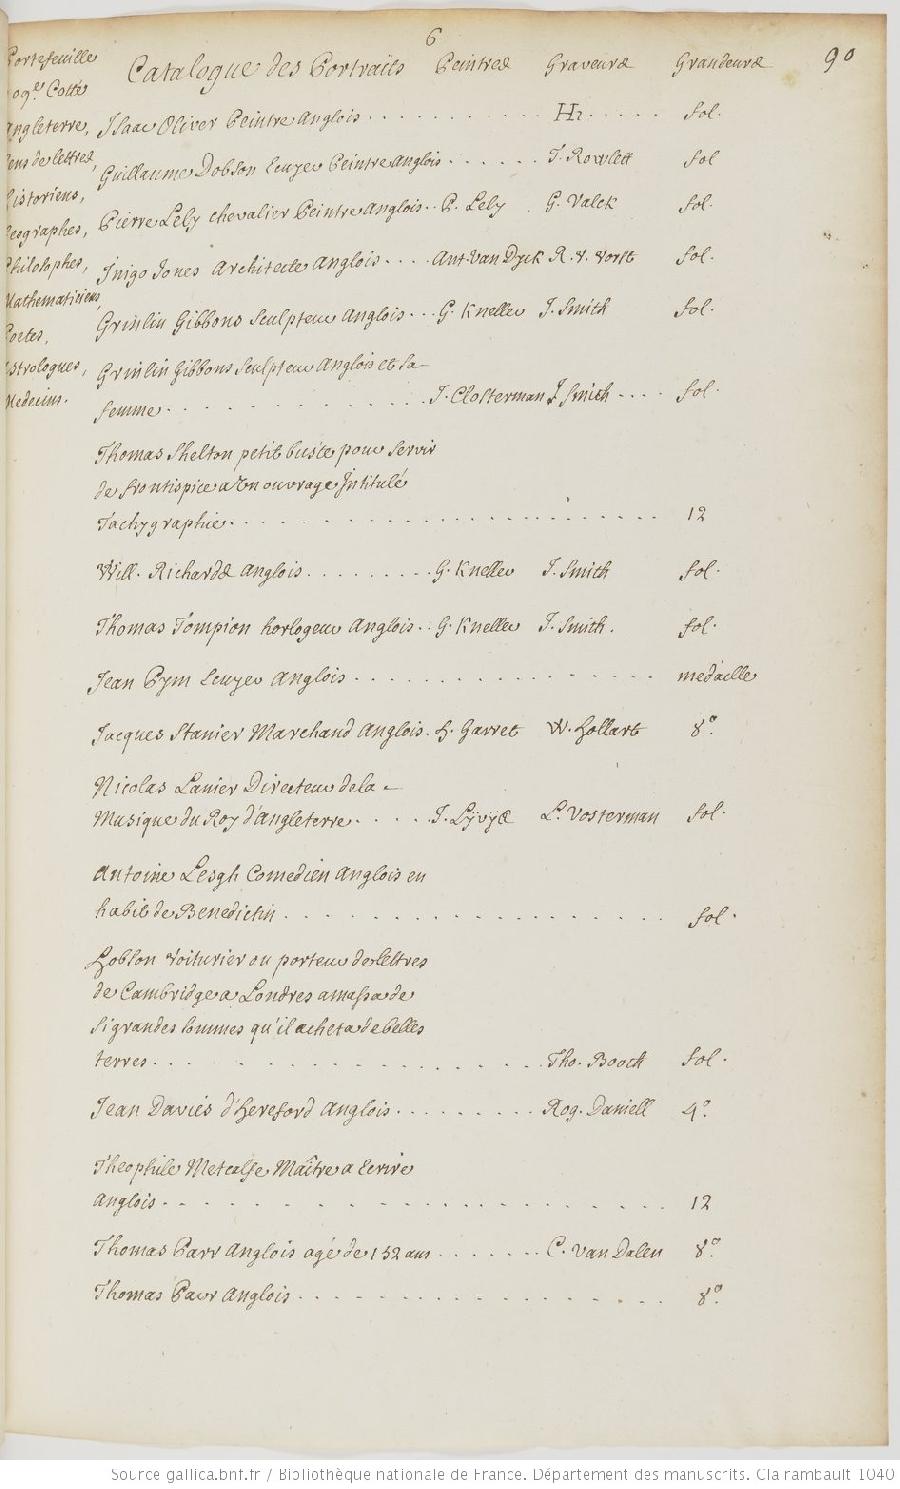 6
90
Portefeuille
Cotté
Angleterre,
Gens de lettres,
Historiens,
Geographes,
Philosophes,
Mathematiciens,
Poetes,
Astrologues,
Medecins.
Catalogue des Portraits Peintres Graveurs Grandeurs
Isaac Oliver Peintre Anglois . . . . . . . . . . H . . . . . fol.
Guillaume Dobson Ecuyer Peintre Anglois . . . . . . J. Rowlett fol
Pierre Lely chevalier Peintre Anglois . . P. Lely G. Valck fol.
Jnigo Jones Architecte Anglois . . . . Ant Van Dyck R. V. Vorst fol.
Grinlin Gibbons Sculpteur Anglois . . . G. Kneller J. Smith fol.
Grinlin Gibbons Sculpteur Anglois et sa
femme . . . . . . . . . . . . . J. Closterman J. Smith . . . . fol.
Thomas Shelton petit buste pour servir
de frontispice a Un ouvrage Jntitulé
Tachygraphie . . . . . . . . . . . . . . . . . . . . 12
Will. Richards Anglois . . . . . . . . . G. Kneller J. Smith fol.
Thomas Tompion horlogeur Anglois . . G. Kneller J. Smith. fol.
Jean Pym Ecuyer Anglois . . . . . . . . . . . . . . . . medaille
Jacques Stanier Marchand Anglois . H. Garret W. Hollart 8.º
Nicolas Lanier Directeur de la
Musique du Roy d'Angleterre . . . . . J. Lyvyæ L. Vosterman fol.
Antoine Lesgh Comedien Anglois en
habit de Benedictin . . . . . . . . . . . . . . . . . . fol.
Hobson Voiturier ou porteur de lettres
de Cambridge a Londres amassa de
si grandes sommes qu'il acheta de belles
terres . . . . . . . . . . . . . . . . . Tho. Boock fol.
Jean Davies d'Hereford Anglois . . . . . . . . . Rog. Daniell 4.º
Theophile Metcalfe Maître a Ecrire
Anglois . . . . . . . . . . . . . . . . . . . . . . 12
Thomas Parr Anglois agé de 152 ans . . . . . . . C. Van Dalen 8.º
Thomas Parr Anglois . . . . . . . . . . . . . . . . . . 8.º
Source gallica.bnf.fr / Bibliothèque nationale de France. Département des manuscrits. Clairambault 1040